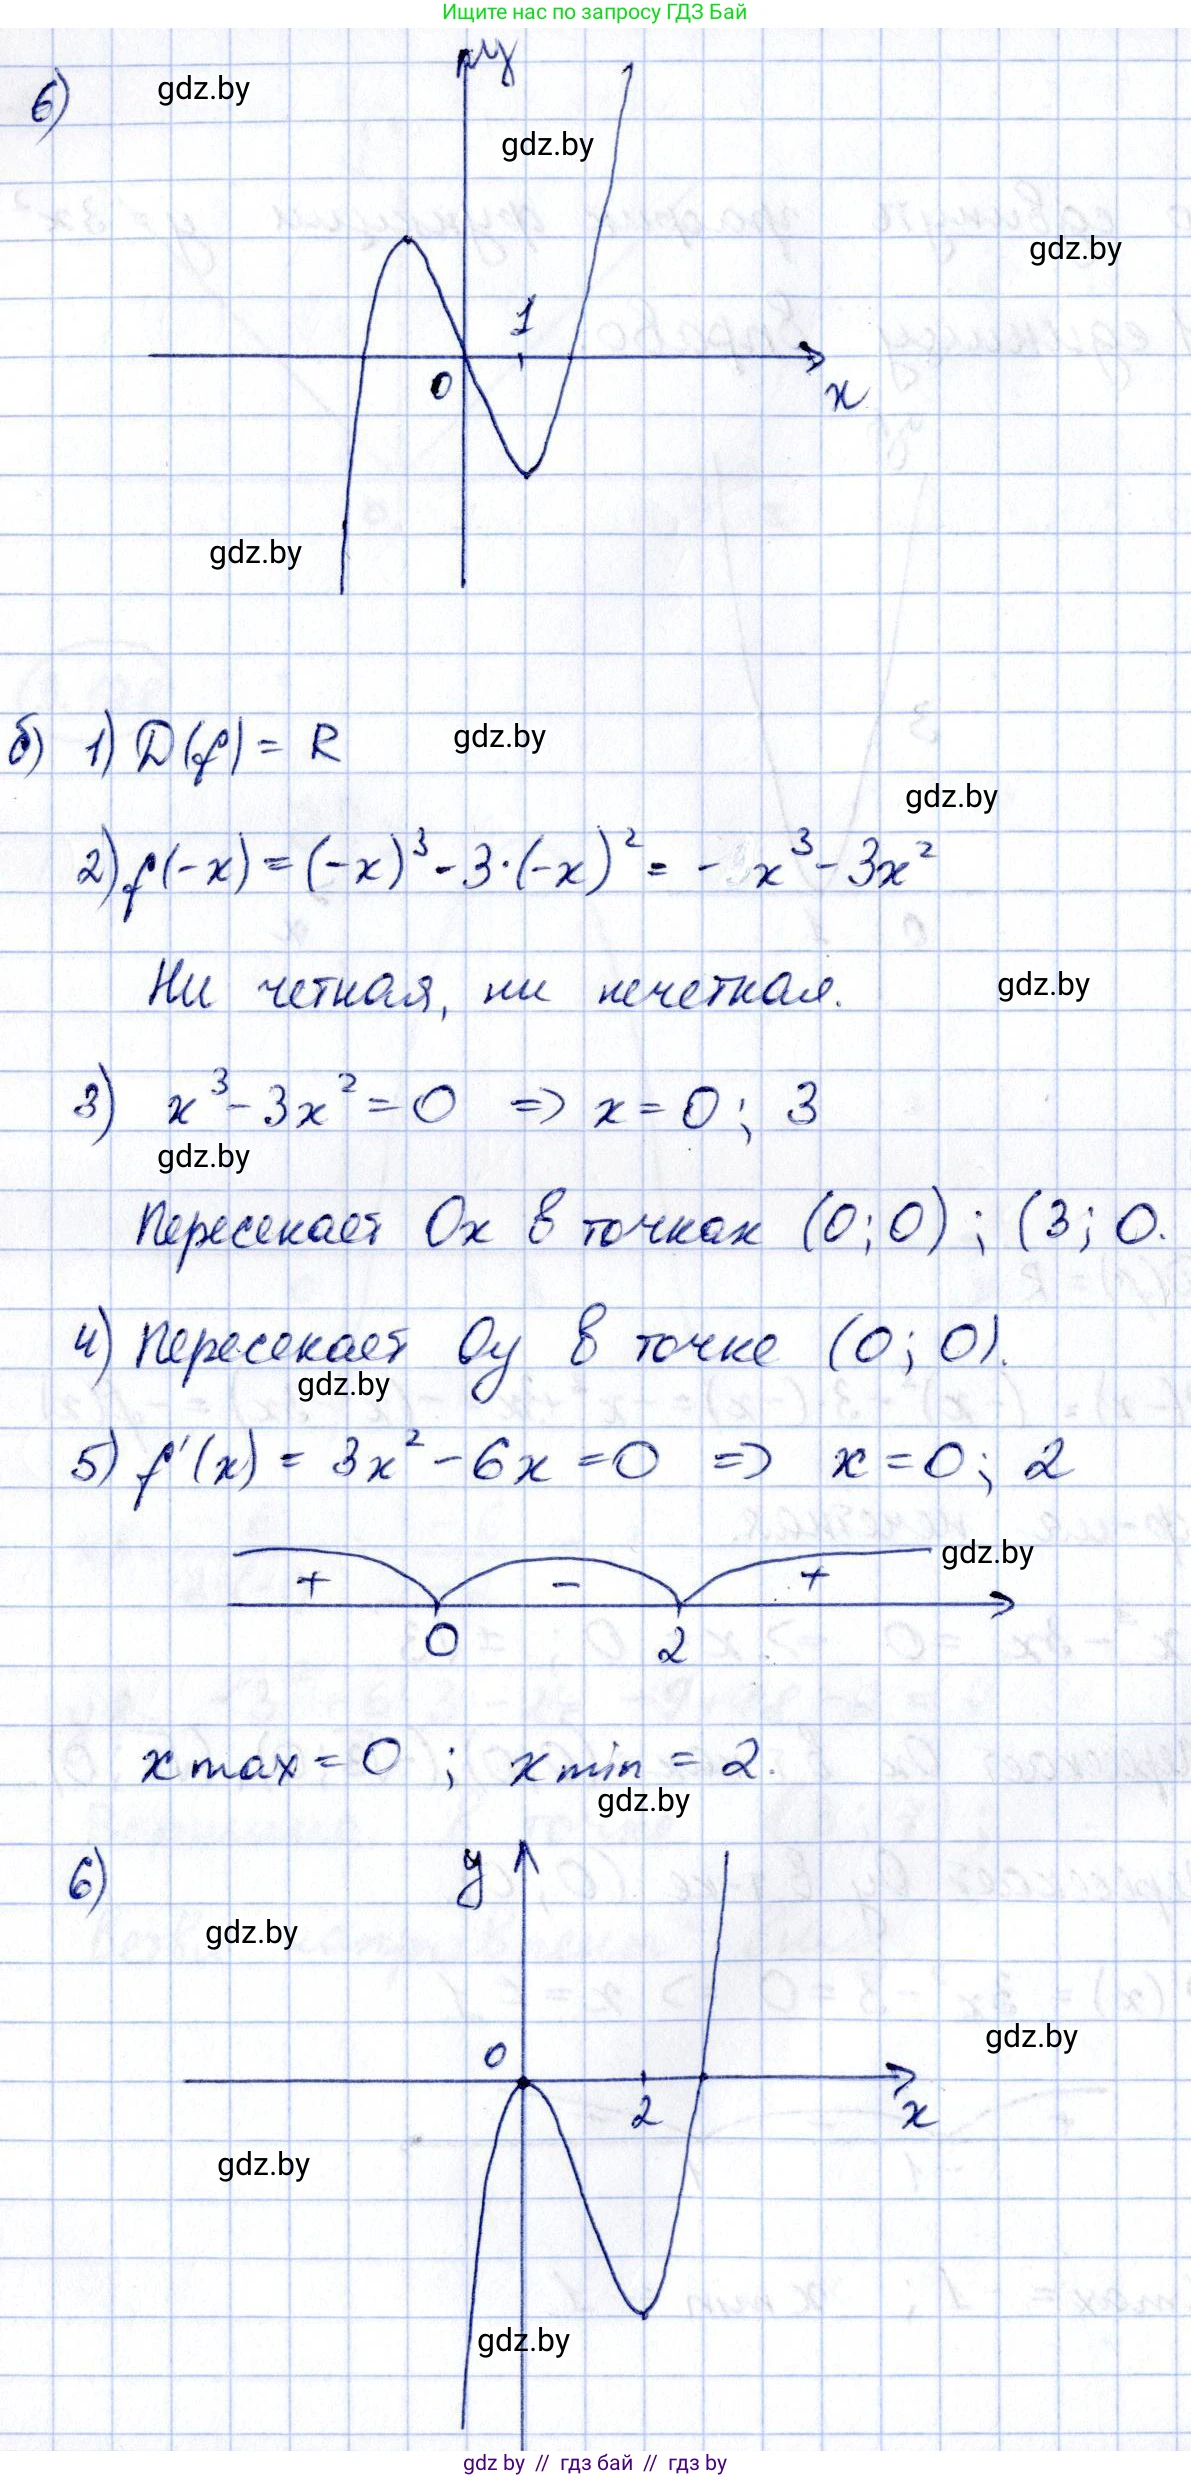 Ищите нас по запросу ГДЗ Бай
6)
gdz.by
y
gdz.by
gdz.by
1
0
x
gdz.by
б) 1) D(f) = R
gdz.by
gdz.by
2) f(-x) = (-x)³ - 3·(-x)² = - x³ - 3x²
Ни четная, ни нечетная.
gdz.by
3) x³ - 3x² = 0 => x = 0; 3
gdz.by
Пересекает Ox в точках (0;0); (3; 0.
4) Пересекает Oy в точке (0; 0).
gdz.by
5) f'(x) = 3x² - 6x = 0 => x = 0; 2
gdz.by
+ - +
0 2
x max = 0 ; x min = 2.
gdz.by
6)
y
gdz.by
0
gdz.by
2
x
gdz.by
gdz.by
gdz by // гдз бай // гдз by